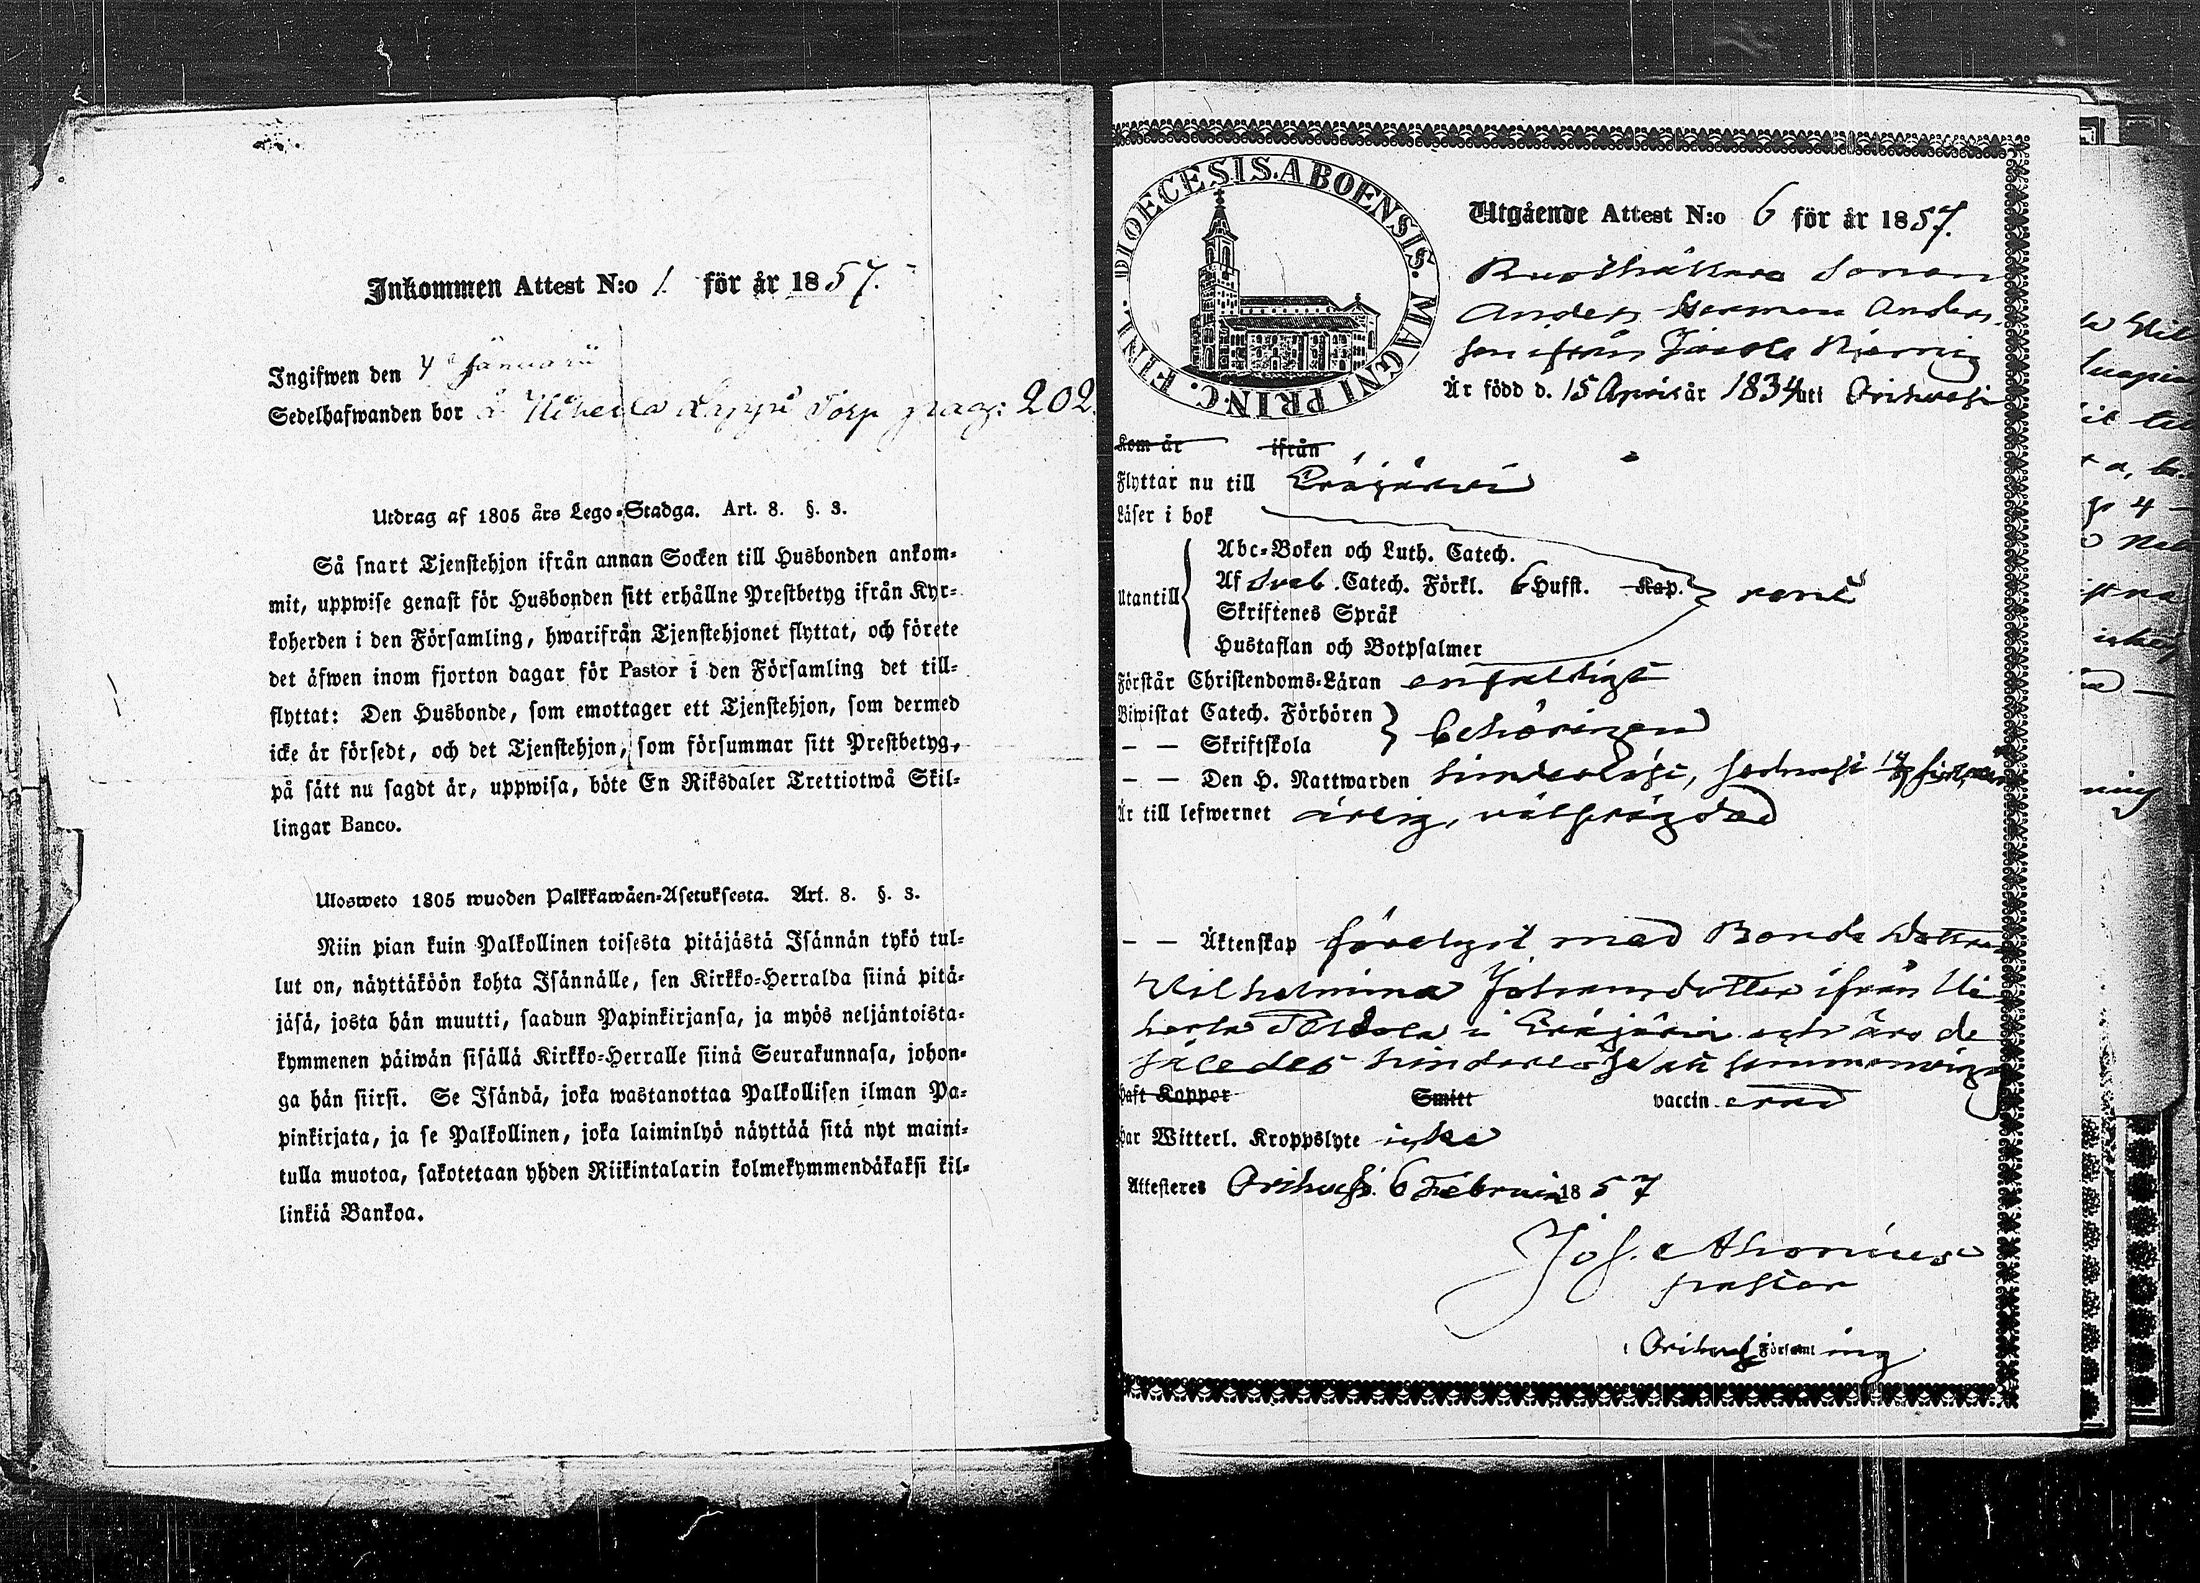 Inkommen Attest N:o 1. för år 1857.
Ingifwen den 4 Januarii
Sedelhafwanden bor å Uiherla Torp pag: 202.
Utdrag af 1805 års Lego-Stadga. Art. 8. §. 3.
Så snart Tjenstehjon ifrån annan Socken till Husbonden ankom-
mit, uppwise genast för Husbonden sitt erhållne Prestbetyg ifrån Kyr-
koherden i den Församling, hwarifrån Tjenstehjonet flyttat, och förete
det äfwen inom fjorton dagar för Pastor i den Församling det till-
flyttat: Den Husbonde, som emottager ett Tjenstehjon, som dermed
icke är försedt, och det Tjenstehjon, som försummar sitt Prestbetyg,
på sätt nu sagdt är, uppwisa, böte En Riksdaler Trettiotwå Skil-
lingar Banco.
Ulosweto 1805 wuoden Palkkawäen-Asetuksesta. Art. 8. §. 3.
Niin pian kuin Palkollinen toisesta pitäjästä Isännän tykö tul-
lut on, näyttäköön kohta Isännälle, sen Kirkko-Herralda siinä pitä-
jäsä, josta hän muutti, saadun Papinkirjansa, ja myös neljäntoista-
kymmenen päiwän sisällä Kirkko-Herralle siinä Seurakunnasa, johon-
ga hän siirsi. Se Isändä, joka wastanottaa Palkollisen ilman Pa-
pinkirjata, ja se Palkollinen, joka laiminlyö näyttää sitä nyt maini-
tulla muotoa, sakotetaan yhden Riikintalarin kolmekymmendäkaksi kil-
linkiä Bankoa.
DIOECESIS. ABOENSIS. MAGNI PRINC. FINL.
Utgående Attest N:o 6 för år 1857.
Rusthållare Sonen
Anders Herman Anders-
son ifrån
Är född d. 15 April år 1834 uti Orihvesi
Kom år ifrån
Flyttar nu till Eräjärvi
Läser i bok
Abc-Boken och Luth. Catech.
Utantill Af Sveb. Catech. Förkl. 6 Hufst. Kap. rent
Skriftenes Språk
Hustaflan och Botpsalmer
Förstår Christendoms-Läran enfaldigt
Biwistat Catech. Förhören behörigen
— — Skriftskola
— — Den H. Nattwarden
Är till lefwernet ärlig, välfrägdad
— — Äktenskap förelyst med Bonde Dottren
Wilhelmina Johansdotter ifrån Ui-
herla i Eräjärvi och äro de
således hinderlöse att sammanvigas
Haft Koppor Smitt vaccinerad
Har Witterl. Kroppslyte icke
Attesteres Orihvesi 6 Februari 1857
Jos.
pastor
i Orihvesi Församling